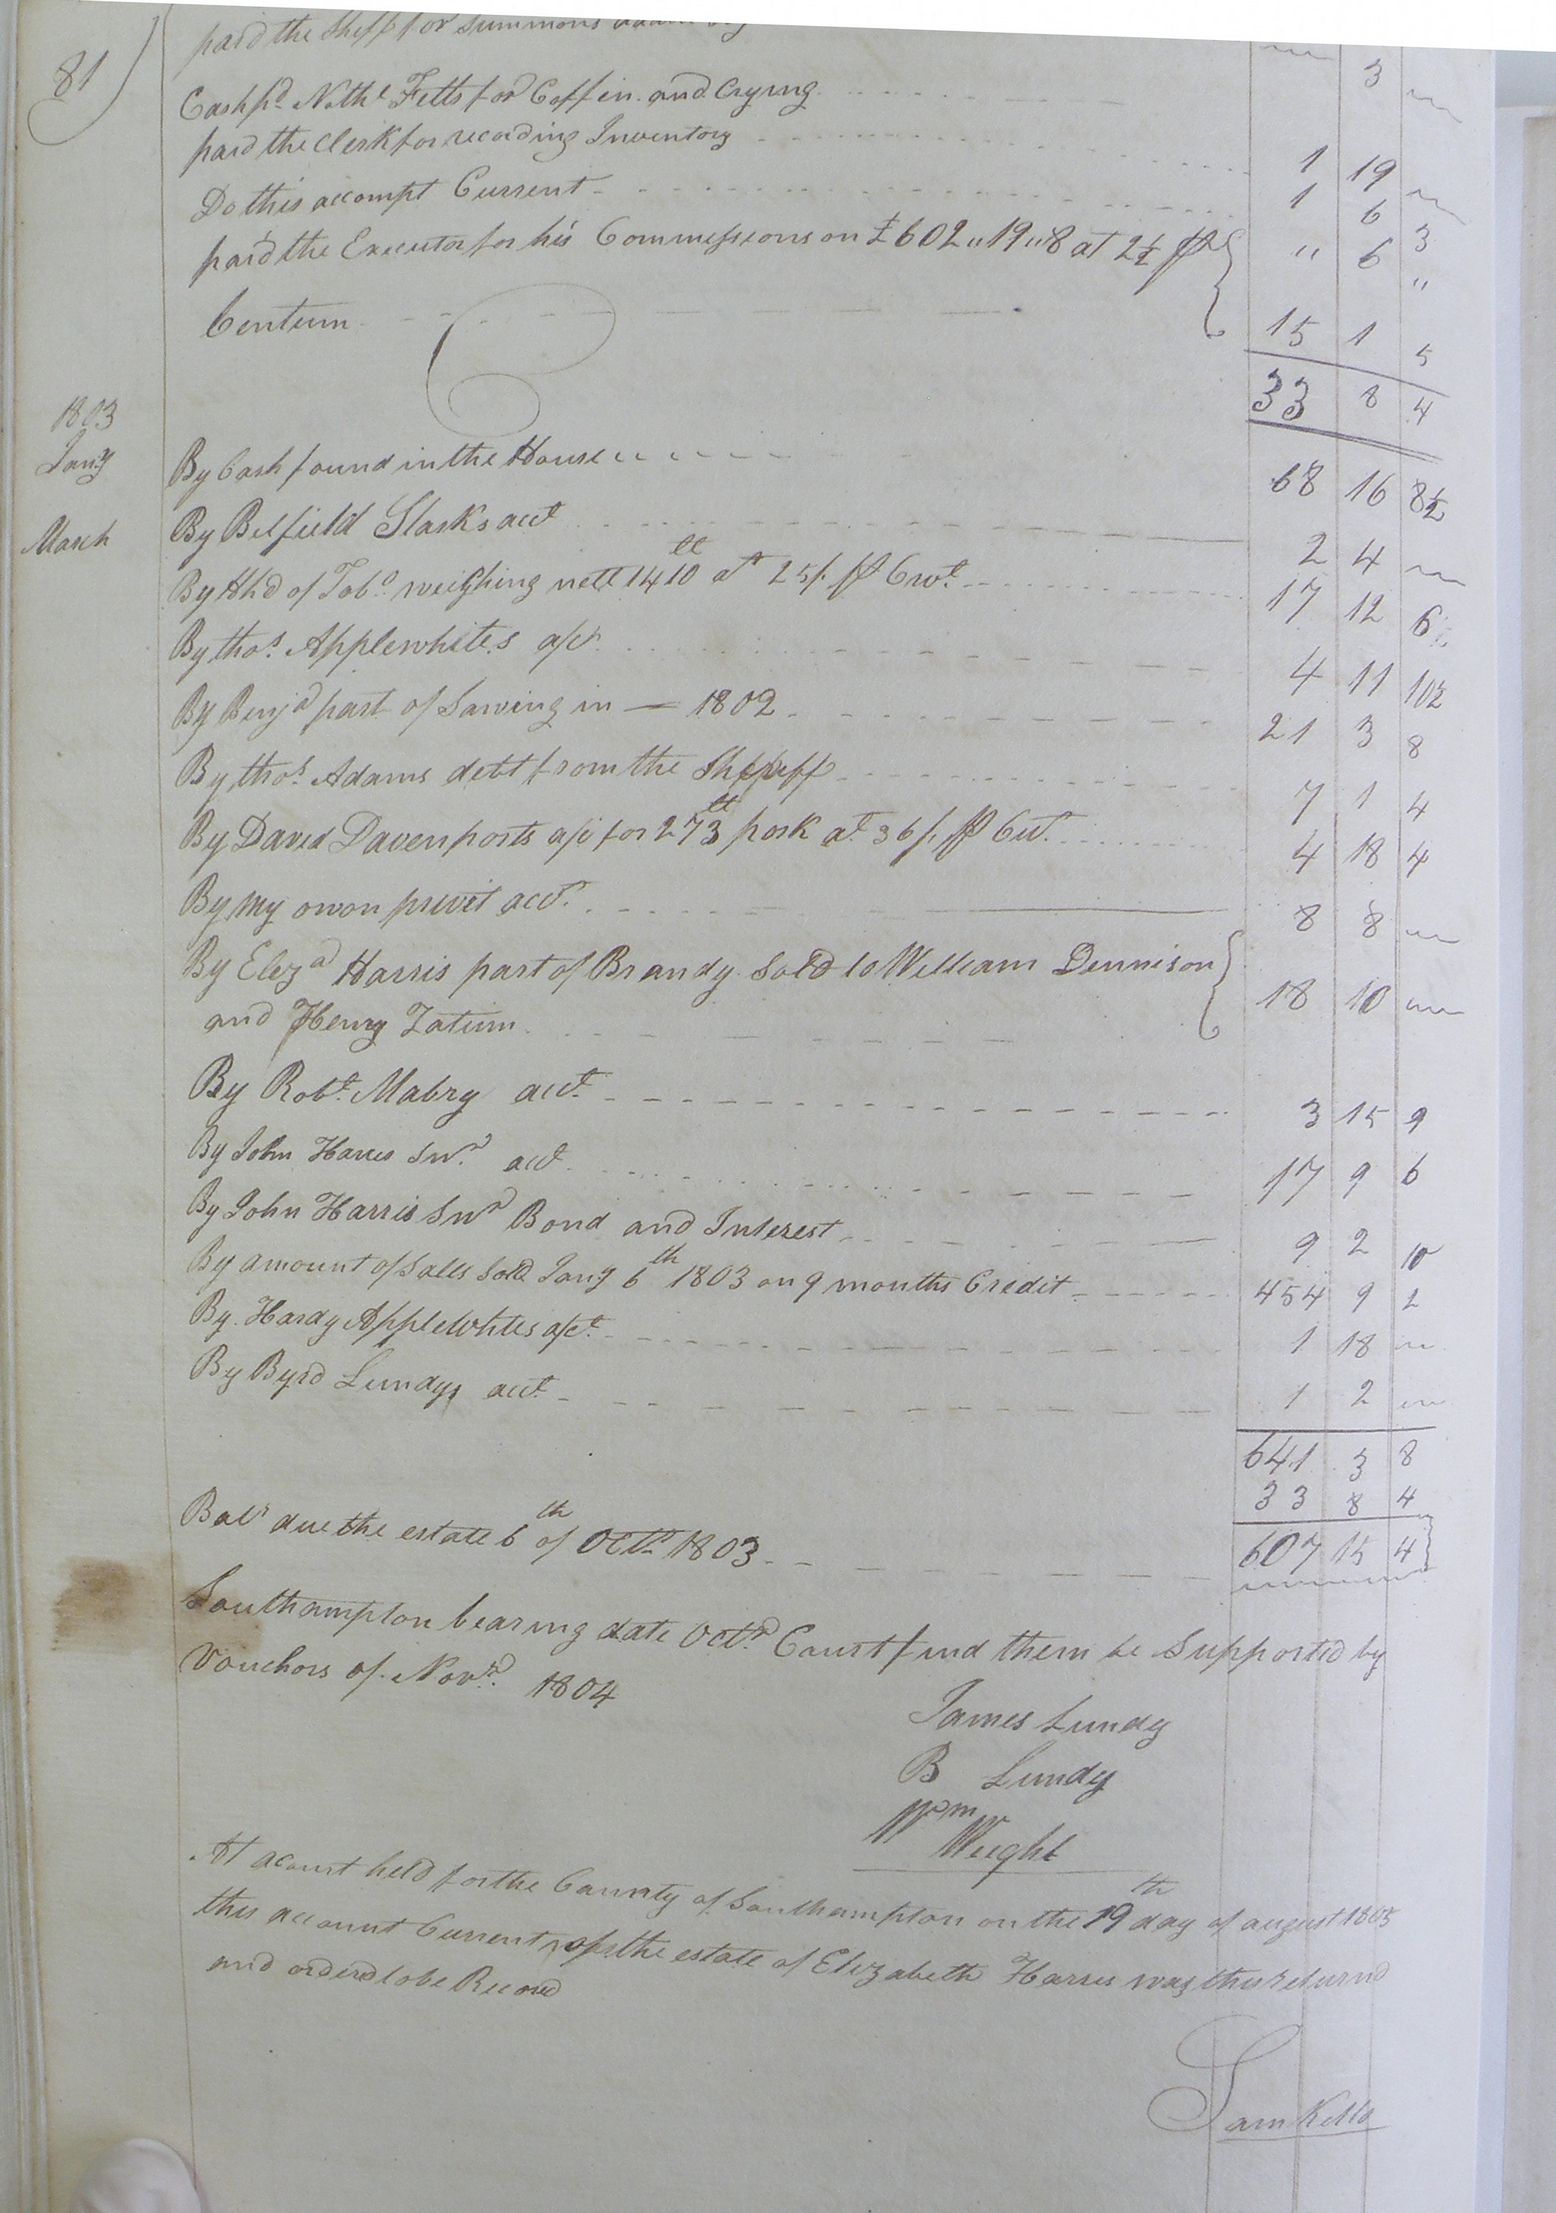 81
paid the Sheff for Summons
3
Cash pd Nathl Fitts for Coffin and Crying 1 19
paid the Clerk for recording Inventory 1 6 3
Do this accompt Current " 6 "
paid the Executor for his Commissions on £602"19"8 at 2½ pr
Centum 15 1 5
33 8 4
1803
Jany By Cash found in the House 68 16 8½
March By Belfield Starks acct 2 4
By Hhd of Tobo weighing nett 1410 lt at 25/. pr Cwt 17 12 6
By thos Applewhites a/ct 4 11 10½
By Benja part of Sawing in — 1802 21 3 8
By thos Adams debt from the Sheriff 7 1 4
By David Davenports a/c for 273 lt pork at 36/. pr Cwt 4 18 4
By my owon privit acct 8 8
By Eliza Harris part of Brandy Sold to William Dennison
and Henry Tatum 18 10
By Robt Mabry acct 3 15 9
By John Harris Snr acct 17 9 6
By John Harris Snr Bond and Interest 9 2 10
By amount of Sales Sold Jany 6th 1803 on 9 months Credit 454 9 2
By Hardy Applewhites a/ct 1 18
By Byrd Lundys acct 1 2
641 3 8
33 8 4
Bale due the estate 6th of Octr 1803 607 15 4
Southampton bearing date Octr Court find them be Supported by
Vouchors of Novr 1804
James Lundy
B Lundy
Wm
Wright
At acourt held for the County of Southampton on the 19th day of august 1805
this account Current of the estate of Elizabeth Harris was this returnd
and orderd to be Recored
Sam Kello